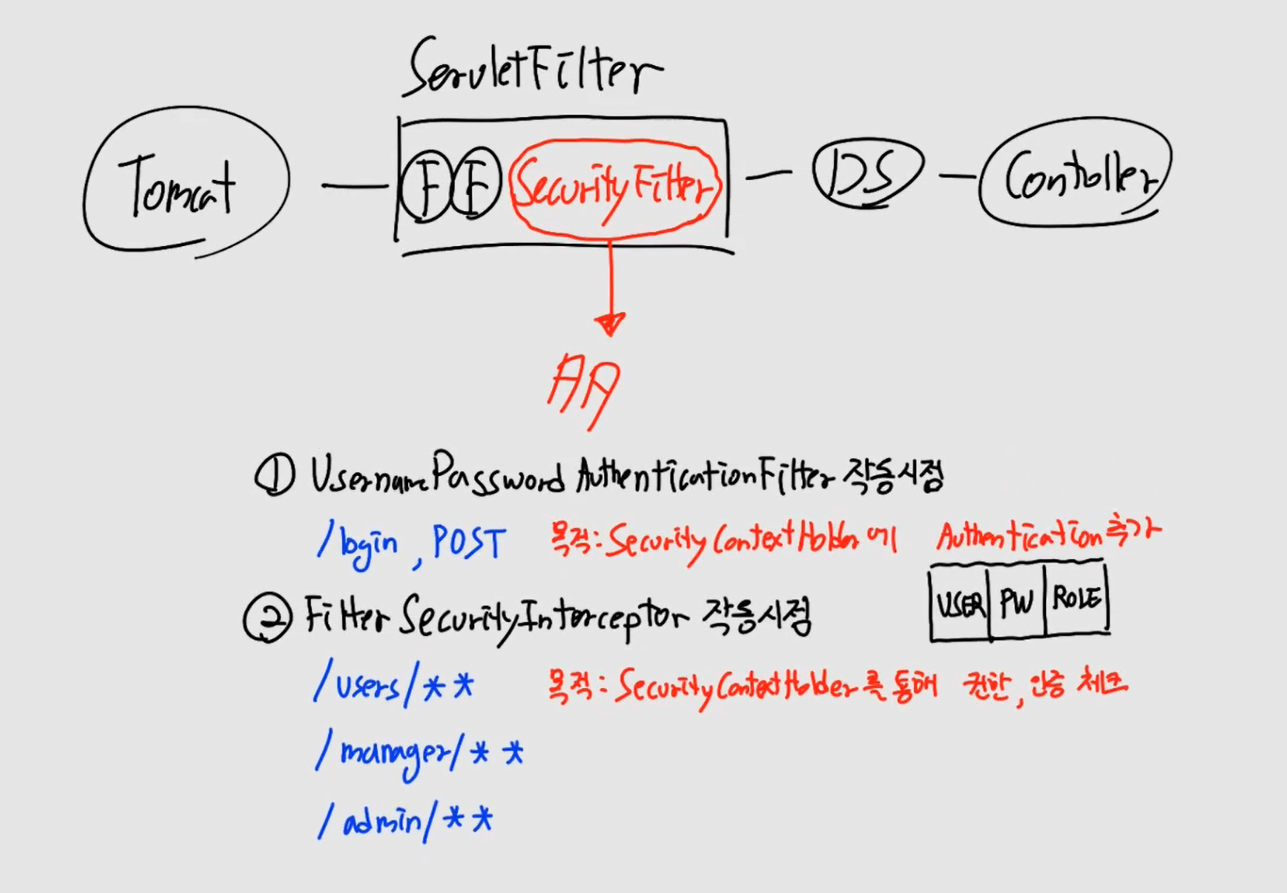 ServletFilter
Tomcat F F SecurityFilter DS Contoller
AA
① UsernamePasswordAuthenticationFilter 작동시점
/login , POST 목적: SecurityContextHolder에 Authentication추가
USER PW ROLE
② FilterSecurityInterceptor 작동시점
/users/** 목적: SecurityContextHolder를 통해 권한, 인증 체크
/manager/**
/admin/**